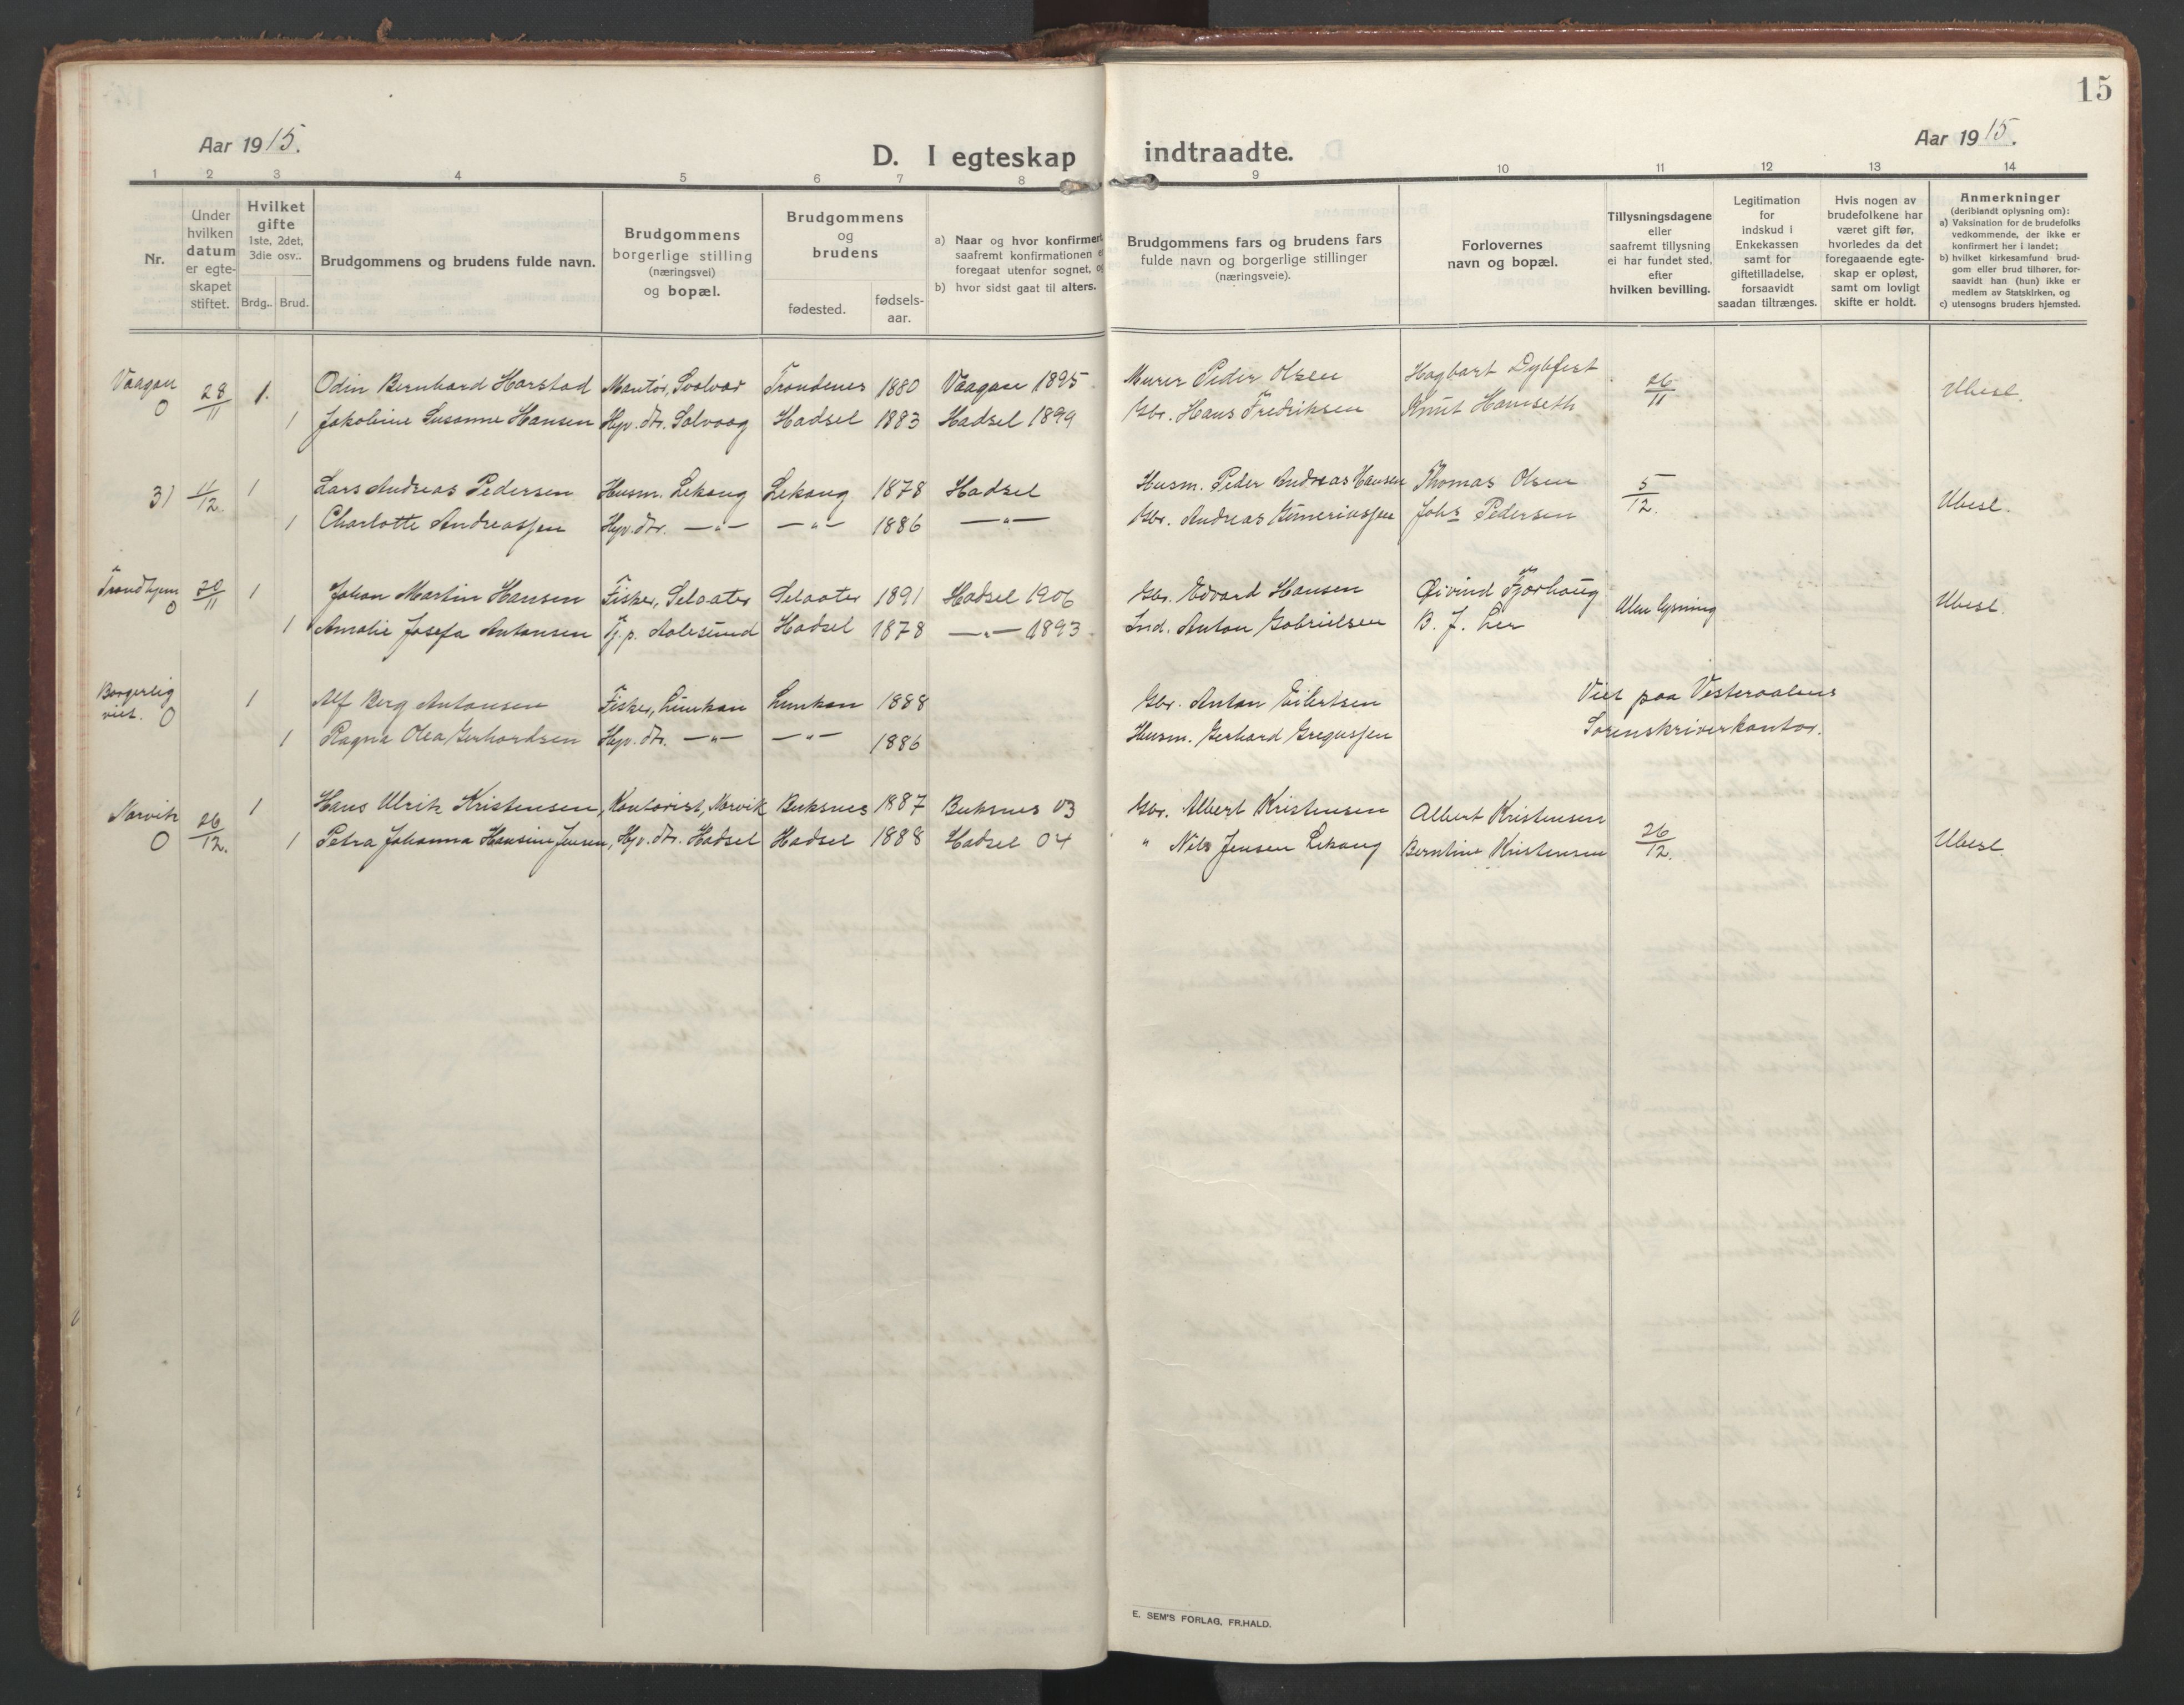 15
Aar 1915.
D. I egteskap indtraadte.
Aar 1915.
1 2 3 4 5 6 7 8 9 10 11 12 13 14
Nr.
Under
hvilken
datum
er egte-
skapet
stiftet.
Hvilket
gifte
1ste, 2det,
3die osv..
Brdg.. Brud.
Brudgommens og brudens fulde navn.
Brudgommens
borgerlige stilling
(næringsvei)
og bopæl.
Brudgommens
og
brudens
fødested.
fødsels-
aar.
a) Naar og hvor konfirmert
saafremt konfirmationen
foregaat utenfor sognet,
b) hvor sidst gaat til alters.
Brudgommens fars og brudens fars
fulde navn og borgerlige stillinger
(næringsveie).
Forlovernes
navn og bopæl.
Tillysningsdagene
eller
saafremt tillysning
ei har fundet sted,
efter
hvilken bevilling.
Legitimation
for
indskud i
Enkekassen
samt for
giftetilladelse,
forsaavidt
saadan tiltrænges.
Hvis nogen av
brudefolkene har
været gift før,
hvorledes da det
foregaaende egte-
skap er opløst,
samt om lovligt
skifte er holdt.
Anmerkninger
(deriblandt oplysning om):
a) Vaksination for de brudefolks
vedkommende, der ikke er
konfirmert her i landet;
b) hvilket kirkesamfund brud-
gom eller brud tilhører, for-
saavidt han (hun) ikke er
medlem av Statskirken, og
c) utensogns bruders hjemsted.
Vaagan 0 28/11 1. Odin Bernhard Harstad Svolvær Trondenes 1880 Vaagan 1895 Murer Peder Olsen Hagbart Dybfest 26/11 Ubesl.
1 Jakobine Susanne Hansen Hjv. dtr. Solvaag Hadsel 1883 Hadsel 1899 Gbr. Hans Fredriksen Knut Hamseth
31 11/12. 1 Lars Andreas Pedersen Husm. Lekang Lekang 1878 Hadsel Husm. Peder Andreas Hansen Thomas Olsen 5/12. Ubesl.
1 Charlotte Andreassen Hjv. dtr. —"— —"— 1886 —"— Gbr. Andreas Johs Pedersen
Trondhjem 0 20/11 1 Johan Martin Hansen Fisker, Selaater Selaater 1891 Hadsel 1906 Gbr. Edvard Hansen Øivind Fjørhaug Uten lysning Ubesl.
1 Amalie Josefa Antonsen Tj.p. Aalesund Hadsel 1878 —"— 1893 Ind. Anton Gabrielsen B. J. Lea
Borgerlig viet. 0 1 Alf Berg Antonsen Fisker, Lunkan Lunkan 1888 Gbr. Anton Eilertsen Viet paa Vesteraalens
1 Ragna Olea Gerhardsen Hjv. dtr. —"— —"— 1886 Husm. Gerhard Gregussen Sorenskriverkontor.
Narvik 0 26/12. 1 Hans Ulrik Kristensen, Kontorist, Narvik Buksnes 1887 Buksnes 03 Gbr. Albert Kristensen Albert Kristensen
1 Petra Johanna Hansine Jensen, Hjv. dtr. Hadsel Hadsel 1888 Hadsel 04 " Nils Jensen Lekang Berntine Kristensen 26/12. Ubesl.
E. SEM'S FORLAG, FR.HALD.